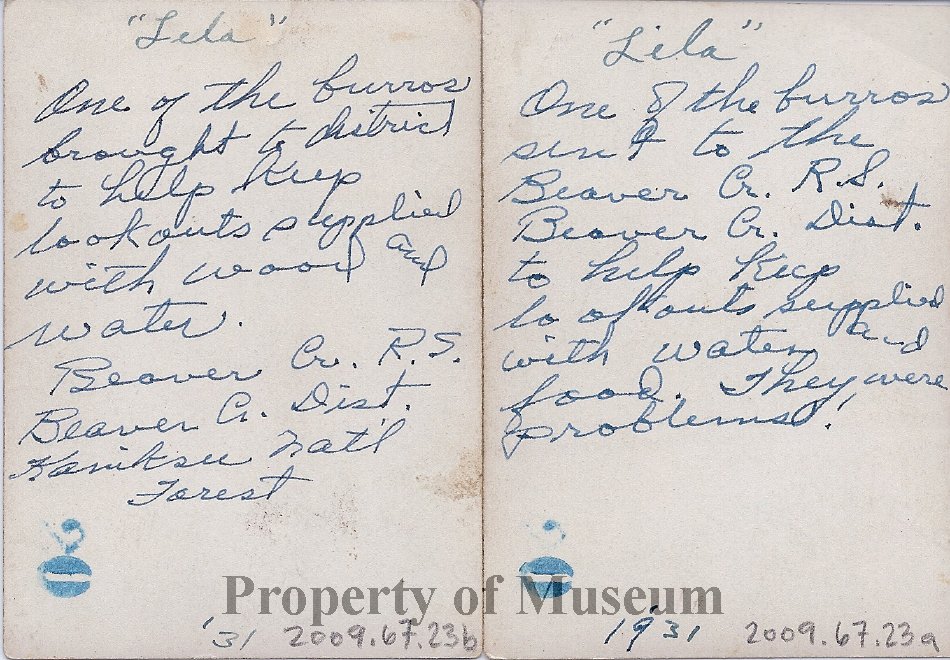 "Lela"
One of the burros
brought to district
to help keep
lookouts supplied
with wood and
water.
Beaver Cr. R.S.
Beaver Cr. Dist.
Kaniksu Nat'l
Forest
'31 2009.67.23b
"Lila"
One of the burros
sent to the
Beaver Cr. R.S.
Beaver Cr. Dist.
to help keep
lookouts supplied
with water and
food. They were
problems!
1931 2009.67.23a
Property of Museum